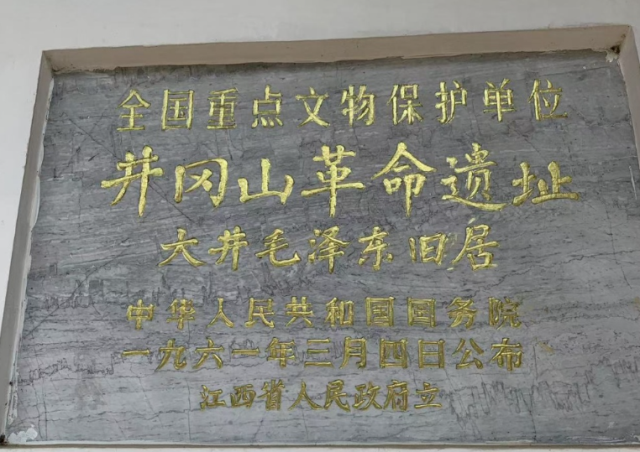 全国重点文物保护单位
井冈山革命遗址
大井毛泽东旧居
中华人民共和国国务院
一九六一年三月四日公布
江西省人民政府立